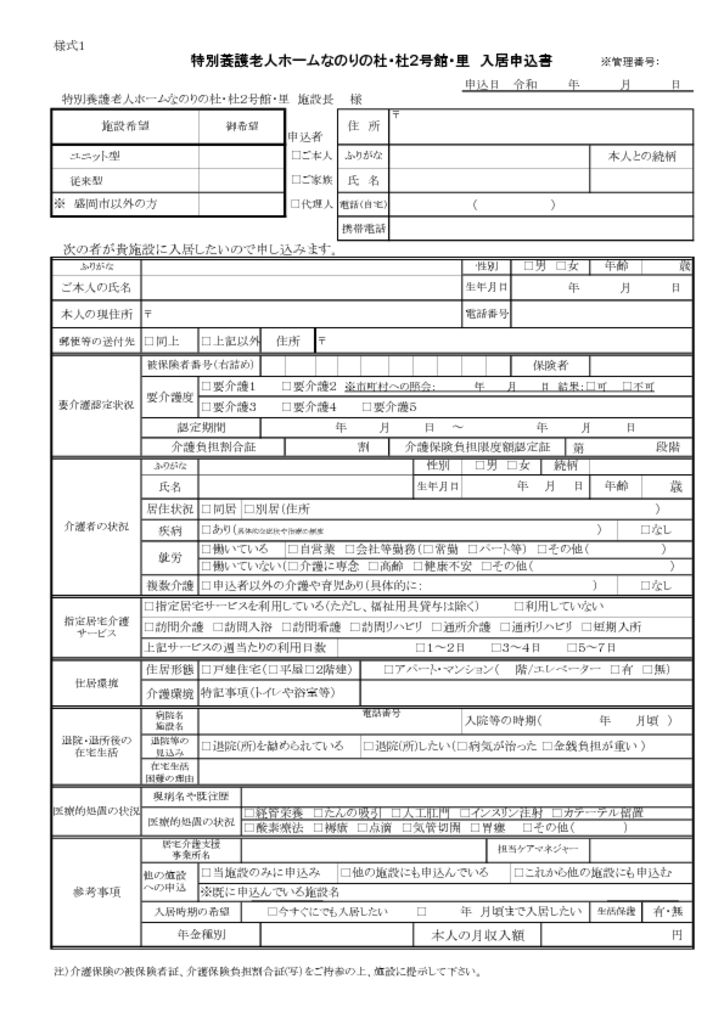 様式1
特別養護老人ホームなのりの杜・杜2号館・里 入居申込書 ※管理番号:
申込日 令和 年 月 日
特別養護老人ホームなのりの杜・杜2号館・里 施設長 様
施設希望 御希望
ユニット型
従来型
※ 盛岡市以外の方
申込者
□ご本人
□ご家族
□代理人
住 所 〒
ふりがな 本人との続柄
氏 名
電話(自宅) ( )
携帯電話
次の者が貴施設に入居したいので申し込みます。
ふりがな 性別 □男 □女 年齢 歳
ご本人の氏名 生年月日 年 月 日
本人の現住所 〒 電話番号
郵便等の送付先 □同上 □上記以外 住所 〒
要介護認定状況
被保険者番号(右詰め) 保険者
要介護度 □要介護1 □要介護2 ※市町村への照会: 年 月 日 結果:□可 □不可
□要介護3 □要介護4 □要介護5
認定期間 年 月 日 ~ 年 月 日
介護負担割合証 割 介護保険負担限度額認定証 第 段階
介護者の状況
ふりがな 性別 □男 □女 続柄
氏名 生年月日 年 月 日 年齢 歳
居住状況 □同居 □別居(住所 )
疾病 □あり(具体的な症状や治療の頻度 ) □なし
就労 □働いている □自営業 □会社等勤務(□常勤 □パート等) □その他( )
□働いていない(□介護に専念 □高齢 □健康不安 □その他( )
複数介護 □申込者以外の介護や育児あり(具体的に: ) □なし
指定居宅介護
サービス
□指定居宅サービスを利用している(ただし、福祉用具貸与は除く) □利用していない
□訪問介護 □訪問入浴 □訪問看護 □訪問リハビリ □通所介護 □通所リハビリ □短期入所
上記サービスの週当たりの利用日数 □1~2日 □3~4日 □5~7日
住居環境
住居形態 □戸建住宅(□平屋□2階建) □アパート・マンション( 階/エレベーター □有 □無)
介護環境 特記事項(トイレや浴室等)
退院・退所後の
在宅生活
病院名
施設名 電話番号 入院等の時期( 年 月頃 )
退院等の
見込み □退院(所)を勧められている □退院(所)したい(□病気が治った □金銭負担が重い )
在宅生活
困難の理由
医療的処置の状況
現病名や既往歴
医療的処置の状況 □経管栄養 □たんの吸引 □人工肛門 □インスリン注射 □カテーテル留置
□酸素療法 □褥瘡 □点滴 □気管切開 □胃瘻 □その他( )
参考事項
居宅介護支援
事業所名 担当ケアマネジャー
他の施設
への申込 □当施設のみに申込み □他の施設にも申込んでいる □これから他の施設にも申込む
※既に申込んでいる施設名
入居時期の希望 □今すぐにでも入居したい □ 年 月頃まで入居したい 生活保護 有・無
年金種別 本人の月収入額 円
注)介護保険の被保険者証、介護保険負担割合証(写)をご持参の上、施設に提示して下さい。